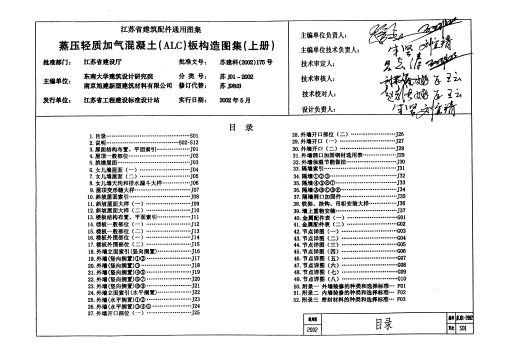 江苏省建筑配件通用图集
蒸压轻质加气混凝土(ALC)板构造图集(上册)
批准部门： 江苏省建设厅 批准文号： 苏建科(2002)175号
主编单位： 东南大学建筑设计研究院 分类号： 苏 J01-2002
南京旭建新型建筑材料有限公司 修订代替： 苏J9803
发行单位： 江苏省工程建设标准设计站 实行日期： 2002年5月
主编单位负责人：
主编单位技术负责人：
技术审定人：
技术审核人：
技术校对人：
设计负责人：
目 录
1.目录 S01
2.说明 S02-S12
3.屋面结构布置、平面索引 J01
4.屋顶一般部位 J02
5.洪坡屋面 J03
6.女儿墙屋面（一） J04
7.女儿墙屋面（二） J05
8.女儿墙天沟和排水漏斗大样 J06
9.屋顶变形缝大样 J07
10.斜坡屋面索引 J08
11.斜坡屋面大样（一） J09
12.斜坡屋面大样（二） J10
13.楼板结构布置、平面索引 J11
14.楼板一般部位（一） J12
15.楼板一般部位（二） J13
16.楼板外围部位（一） J14
17.楼板外围部位（二） J15
18.外墙立面索引(竖向搁置) J16
19.外墙(竖向搁置)①② J17
24.外墙立面索引(水平搁置) J22
25.外墙(水平搁置)①② J23
27.外墙开口部位（一） J25
28.外墙开口部位（二） J26
29.外墙开口（一） J27
30.外墙开口（二） J28
31.外墙洞口加固钢材选用表 J29
32.外墙保温节能做法 J30
33.隔墙索引 J31
34.隔墙①②③ J32
37.隔墙洞口加固件 J35
38.吸柜、挂钩、吊柜安装大样 J36
39.墙上重物安装 J37
40.金属配件表（一） G01
41.金属配件表（二） G02
42.节点详图（一） G03
43.节点详图（二） G04
44.节点详图（三） G05
45.节点详图（四） G06
46.节点详图（五） G07
47.节点详图（六） G08
48.节点详图（七） G09
49.节点详图（八） G10
50.附录一 外墙装修的种类和选择标准 F01
51.附录二 内墙装修的种类和选择标准 F02
52.附录三 密封材料的种类和选择标准 F03
2002 目录 S01